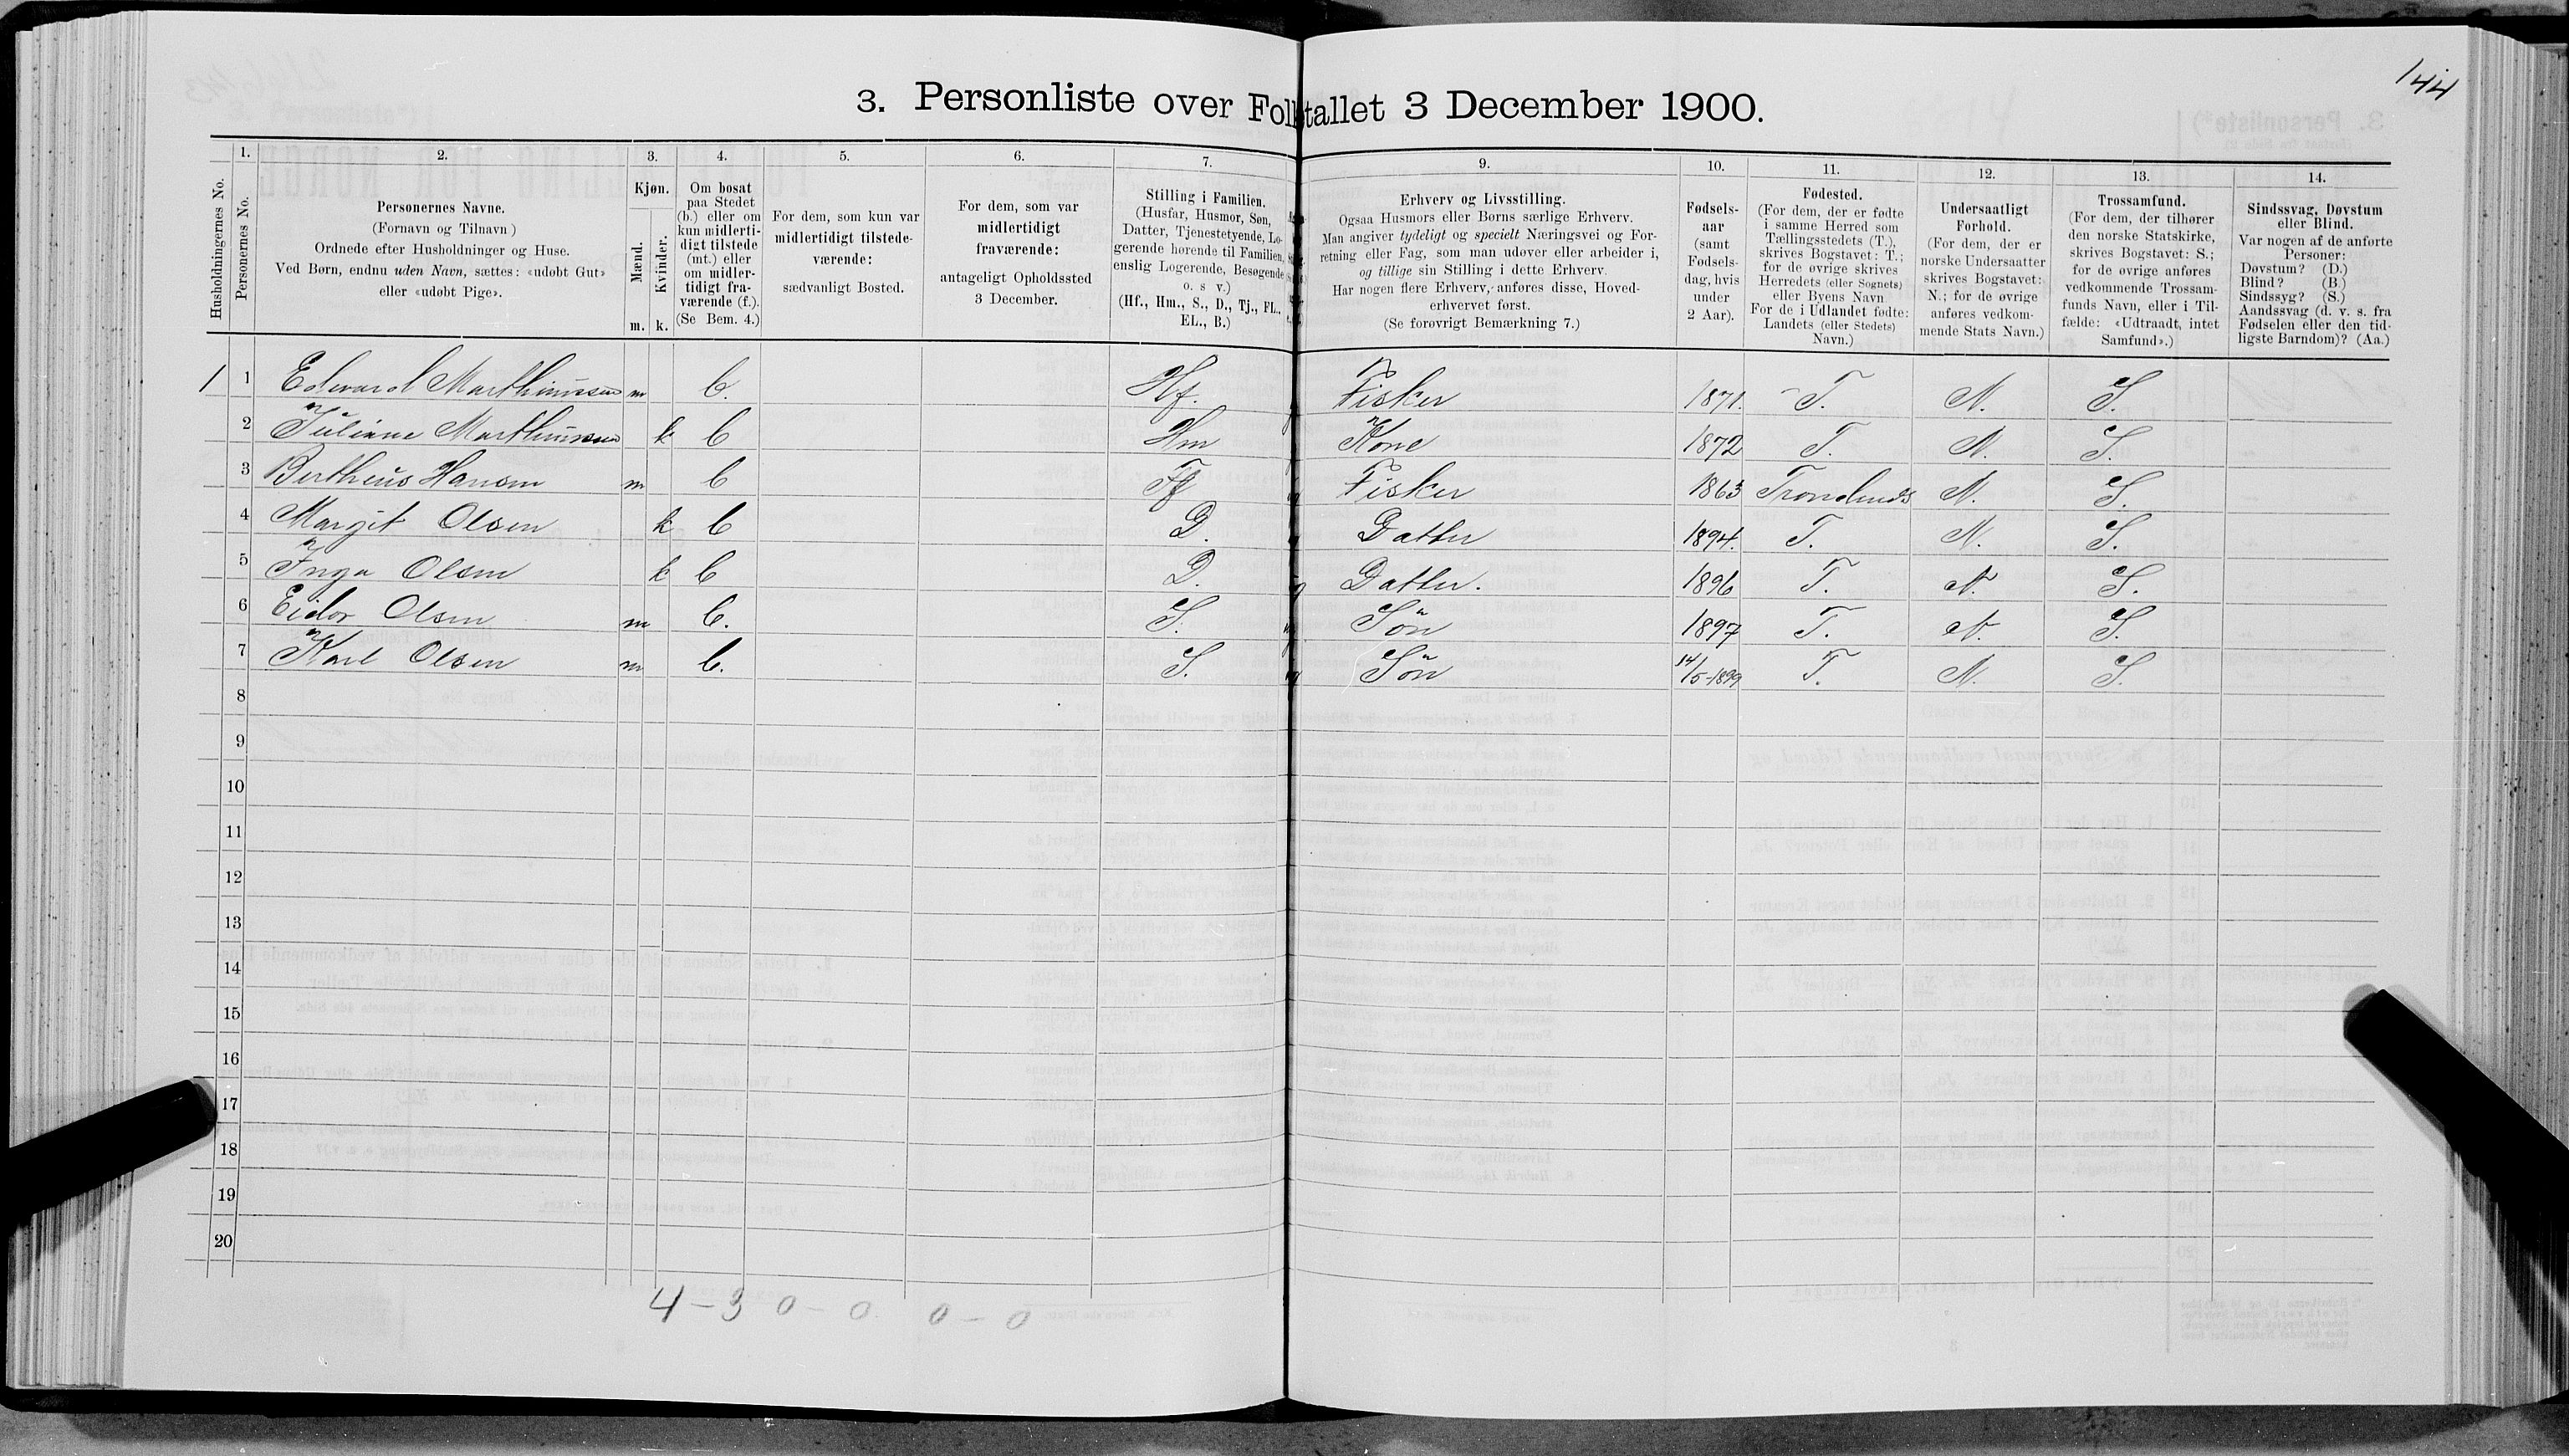 144
3. Personliste over Folketallet 3 December 1900.
1. 2. 3. 4. 5. 6. 7. 9. 10. 11. 12. 13. 14.
Husholdningernes No.
Personernes No.
Personernes Navne.
(Fornavn og Tilnavn)
Ordnede efter Husholdninger og Huse.
Ved Børn, endnu uden Navn, sættes: «udøbt Gut»
eller «udøbt Pige».
Kjøn.
Mænd.
Kvinder.
m. k.
Om bosat
paa Stedet
(b.) eller om
kun midlerti-
digt tilstede
(mt.) eller
om midler-
tidigt fra-
værende (f.).
(Se Bem. 4.)
For dem, som kun var
midlertidigt tilstede-
værende:
sædvanligt Bosted.
For dem, som var
midlertidigt
fraværende:
antageligt Opholdssted
3 December.
Stilling i Familien.
(Husfar, Husmor, Søn,
Datter, Tjenestetyende, Lo-
gerende hørende til Familien,
enslig Logerende, Besøgende
o. s v.)
(Hf., Hm., S., D., Tj., FL.,
EL., B.)
Erhverv og Livsstilling.
Ogsaa Husmors eller Børns særlige Erhverv.
Man angiver tydeligt og specielt Næringsvei og For-
retning eller Fag, som man udøver eller arbeider i,
og tillige sin Stilling i dette Erhverv.
Har nogen flere Erhverv, anføres disse, Hoved-
erhvervet først.
(Se forøvrigt Bemærkning 7.)
Fødsels-
aar
(samt
Fødsels-
dag, hvis
under
2 Aar).
Fødested.
(For dem, der er fødte
i samme Herred som
Tællingsstedets (T.),
skrives Bogstavet: T.;
for de øvrige skrives
Herredets (eller Sognets)
eller Byens Navn
For de i Udlandet fødte:
Landets (eller Stedets)
Navn.)
Undersaatligt
Forhold.
(For dem, der er
norske Undersaatter
skrives Bogstavet:
N.; for de øvrige
anføres vedkom-
mende Stats Navn.)
Trossamfund.
(For dem, der tilhører
den norske Statskirke,
skrives Bogstavet: S.;
for de øvrige anføres
vedkommende Trossam-
funds Navn, eller i Til-
fælde: «Udtraadt, intet
Samfund».)
Sindssvag, Døvstum
eller Blind.
Var nogen af de anførte
Personer:
Døvstum? (D.)
Blind? (B.)
Sindssyg? (S.)
Aandssvag (d. v. s. fra
Fødselen eller den tid-
ligste Barndom)? (Aa.)
1 1 Edvard Marthinussen m b. Hf. Fisker 1871. T. N. S.
2 Juliane Marthinussen k b Hm Kone 1872 T. N. S.
3 Bertheus Hansen m b Fisker 1863 N. S.
4 Margit Olsen k b D. Datter 1894. T. N. S.
5 Inga Olsen k b D. Datter. 1896 T. N. S.
6 Eidor Olsen m b. S. Sön 1897 T. N. S.
7 Karl Olsen m b. S. Sön 14/5-1899 T. N. S.
8
9
10
11
12
13
14
15
16
17
18
19
20
4 - 3 0 - 0 0 - 0